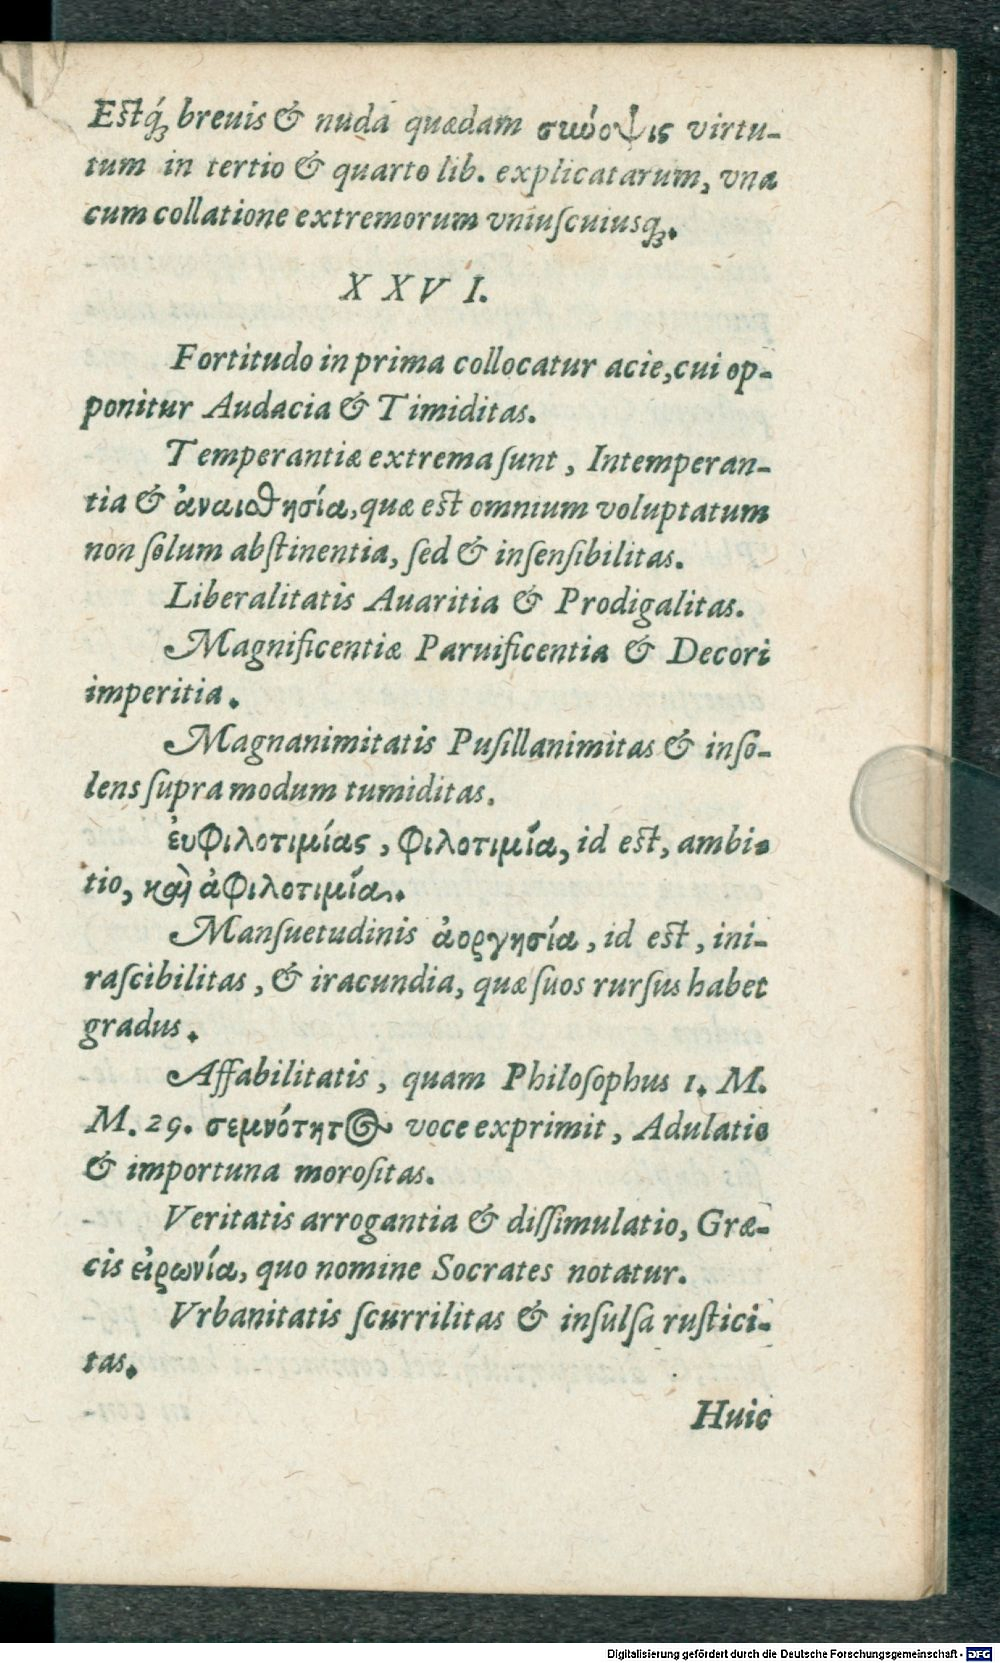 Estq́; breuis & nuda quædam σιώοψις virtu-
tum in tertio & quarto lib. explicatarum, vna
cum collatione extremorum vniuſcuiusq;.
XXVI.
Fortitudo in prima collocatur acie, cui op-
ponitur Audacia & Timiditas.
Temperantiæ extrema ſunt, Intemperan-
tia & ἀναιοθησία, quæ est omnium voluptatum
non ſolum abſtinentia, ſed & inſenſibilitas.
Liberalitatis Auaritia & Prodigalitas.
Magnificentiæ Paruificentia & Decori
imperitia.
Magnanimitatis Puſillanimitas & inſo-
lens ſupra modum tumiditas.
ἐυφιλοτιμίας, φιλοτιμία, id est, ambi-
tio, καὶ ἀφιλοτιμία.
Manſuetudinis ἀοργησία, id est, ini-
raſcibilitas, & iracundia, quæ ſuos rurſus habet
gradus.
Affabilitatis, quam Philoſophus 1. M.
M. 29. σεμνότητ voce exprimit, Adulatio
& importuna moroſitas.
Veritatis arrogantia & diſſimulatio, Græ-
cis εἰρωνία, quo nomine Socrates notatur.
Vrbanitatis ſcurrilitas & inſulſa ruſtici-
tas.
Huic
Digitalisierung gefördert durch die Deutsche Forschungsgemeinschaft - DFG